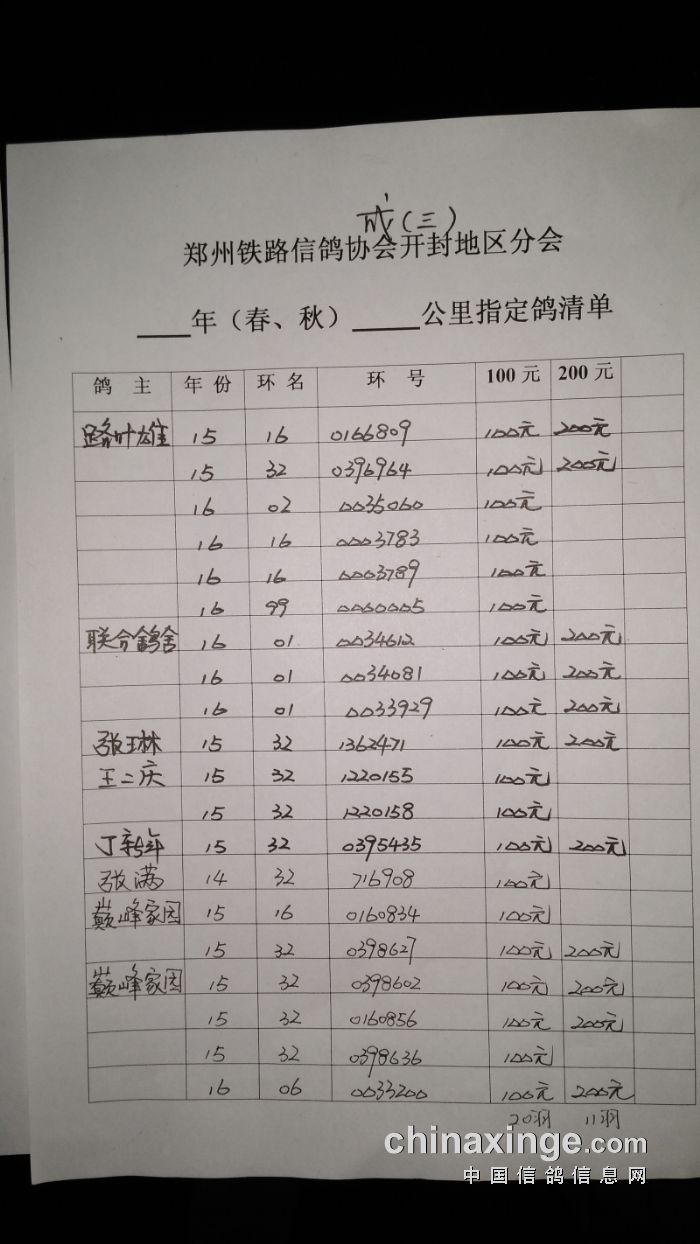 成(三)
郑州铁路信鸽协会开封地区分会
____年（春、秋）_____公里指定鸽清单
鸽 主 年 份 环 名 环 号 100元 200元
路叶雄 15 16 0166809 100元 200元
15 32 0396964 100元 200元
16 02 0035060 100元
16 16 0003783 100元
16 16 0003789 100元
16 99 0060005 100元
联合鸽舍 16 01 0034612 100元 200元
16 01 0034081 100元 200元
16 01 0033929 100元 200元
张琳 15 32 1362471 100元 200元
王二庆 15 32 1220155 100元
15 32 1220158 100元
丁新年 15 32 0395435 100元 200元
张满 14 32 716908 100元
巅峰家园 15 16 0160834 100元
15 32 0398627 100元 200元
巅峰家园 15 32 0398602 100元 200元
15 32 0160856 100元 200元
15 32 0398636 100元
16 06 0033200 100元 200元
20羽 11羽
chinaxinge.com
中国信鸽信息网